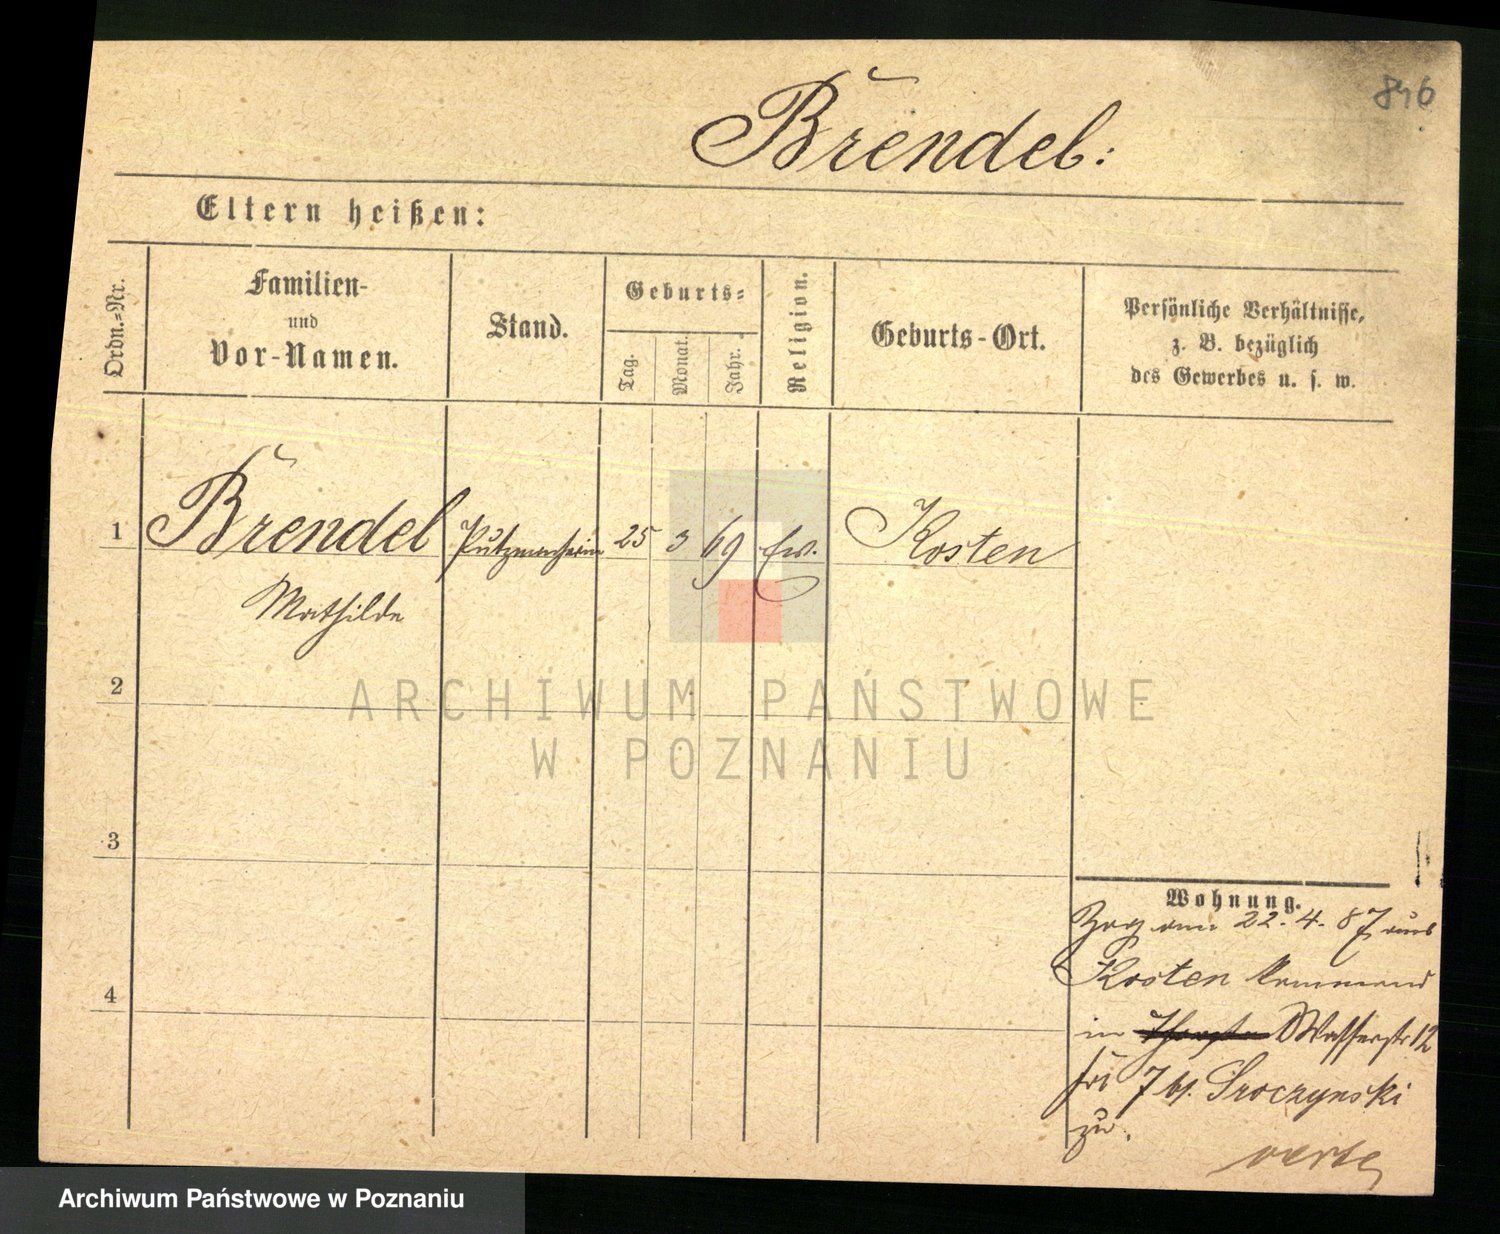 846
Brendel:
Eltern heißen:
Ordn.-Nr.
Familien-
und
Vor-Namen.
Stand.
Geburts-
Tag.
Monat.
Jahr.
Religion.
Geburts-Ort.
Persönliche Verhältnisse,
z. B. bezüglich
des Gewerbes u. s. w.
1 Brendel Putzmacherin 25 3 69 Ev. Kosten
Mathilde
2
ARCHIWUM PAŃSTWOWE
W POZNANIU
3
Wohnung.
Zog am 22. 4. 87 aus
Kosten kommend
4
in Wasserstr 12
bei Sroczynski
zu.
verte
Archiwum Państwowe w Poznaniu